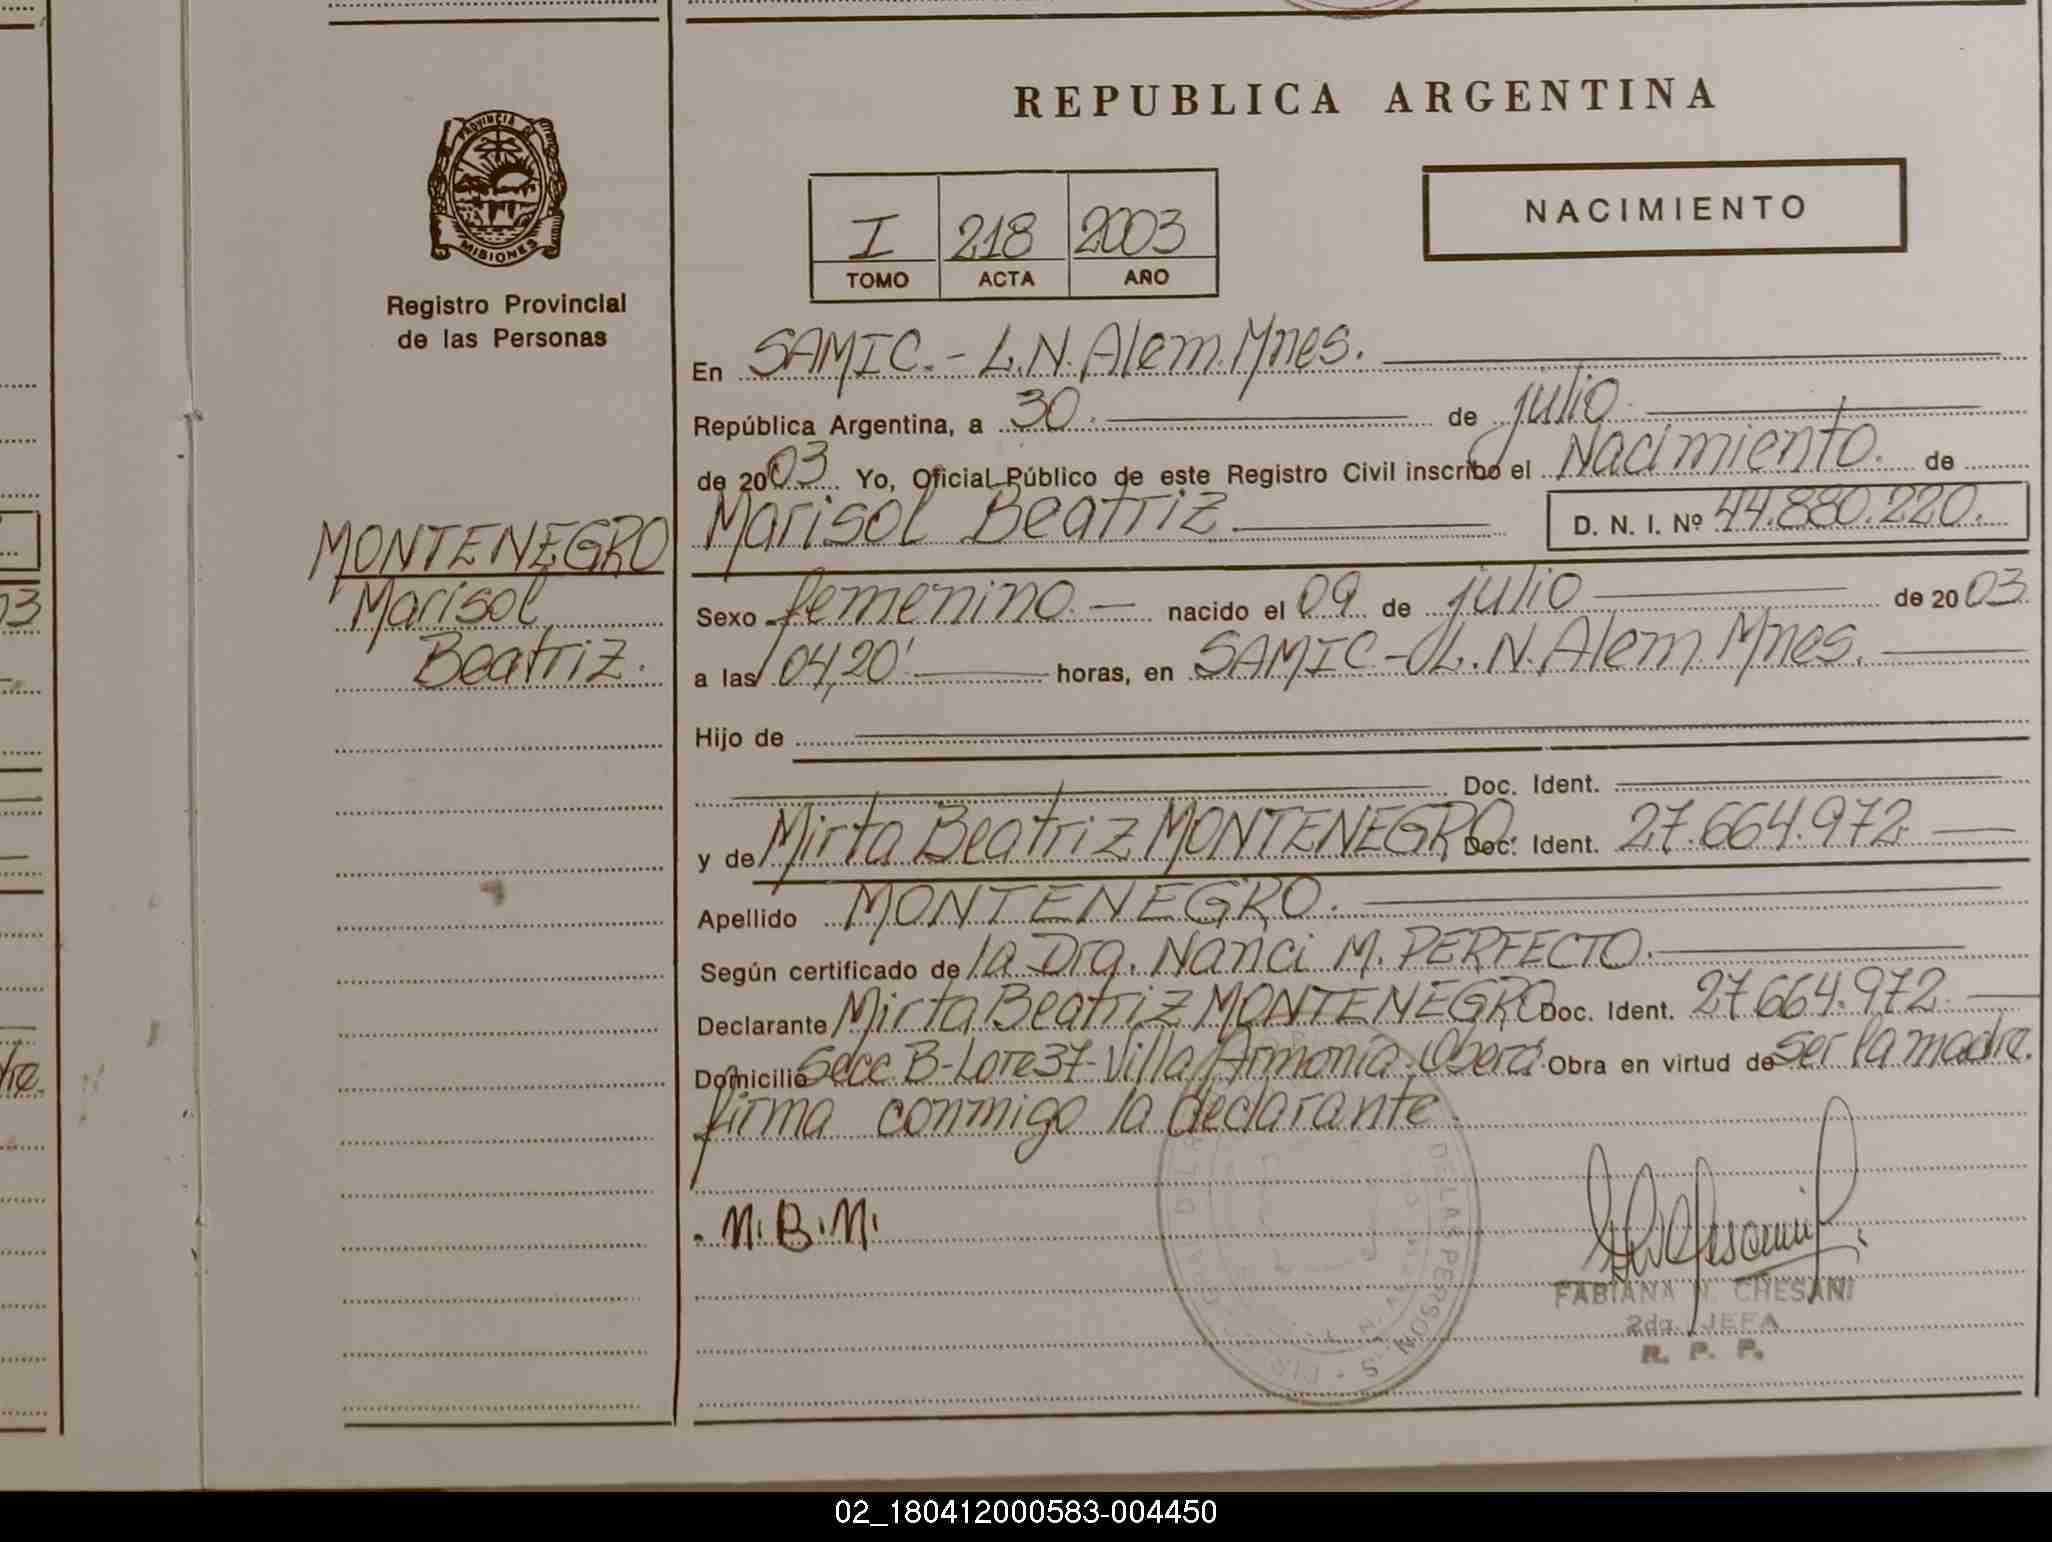 REPUBLICA ARGENTINA
PROVINCIA DE
MISIONES
Registro Provincial
de las Personas
NACIMIENTO
I 218 2003
TOMO ACTA AÑO
En SAMIC.- L.N. Alem. Mnes.
República Argentina, a 30. de julio
de 2003 Yo, Oficial Público de este Registro Civil inscribo el Nacimiento. de
Marisol Beatriz D. N. I. Nº 44.880.220.
MONTENEGRO
Marisol
Beatriz.
Sexo femenino. nacido el 09 de julio de 2003
a las 04,20' horas, en SAMIC-L.N. Alem. Mnes.
Hijo de
Doc. Ident.
y de Mirta Beatriz MONTENEGRO Doc. Ident. 27.664.972
Apellido MONTENEGRO.
Según certificado de la Dra. Nanci M. PERFECTO.
Declarante Mirta Beatriz MONTENEGRO Doc. Ident. 27.664.972
Domicilio Secc B-Lote 37-Villa Armonía. Oberá Obra en virtud de ser la madre.
firma conmigo la declarante.
. M. B. M.
DE LAS PERSONAS
FABIANA N. CHESANI
2da. JEFA
R. P. P.
03
dre.
02_180412000583-004450